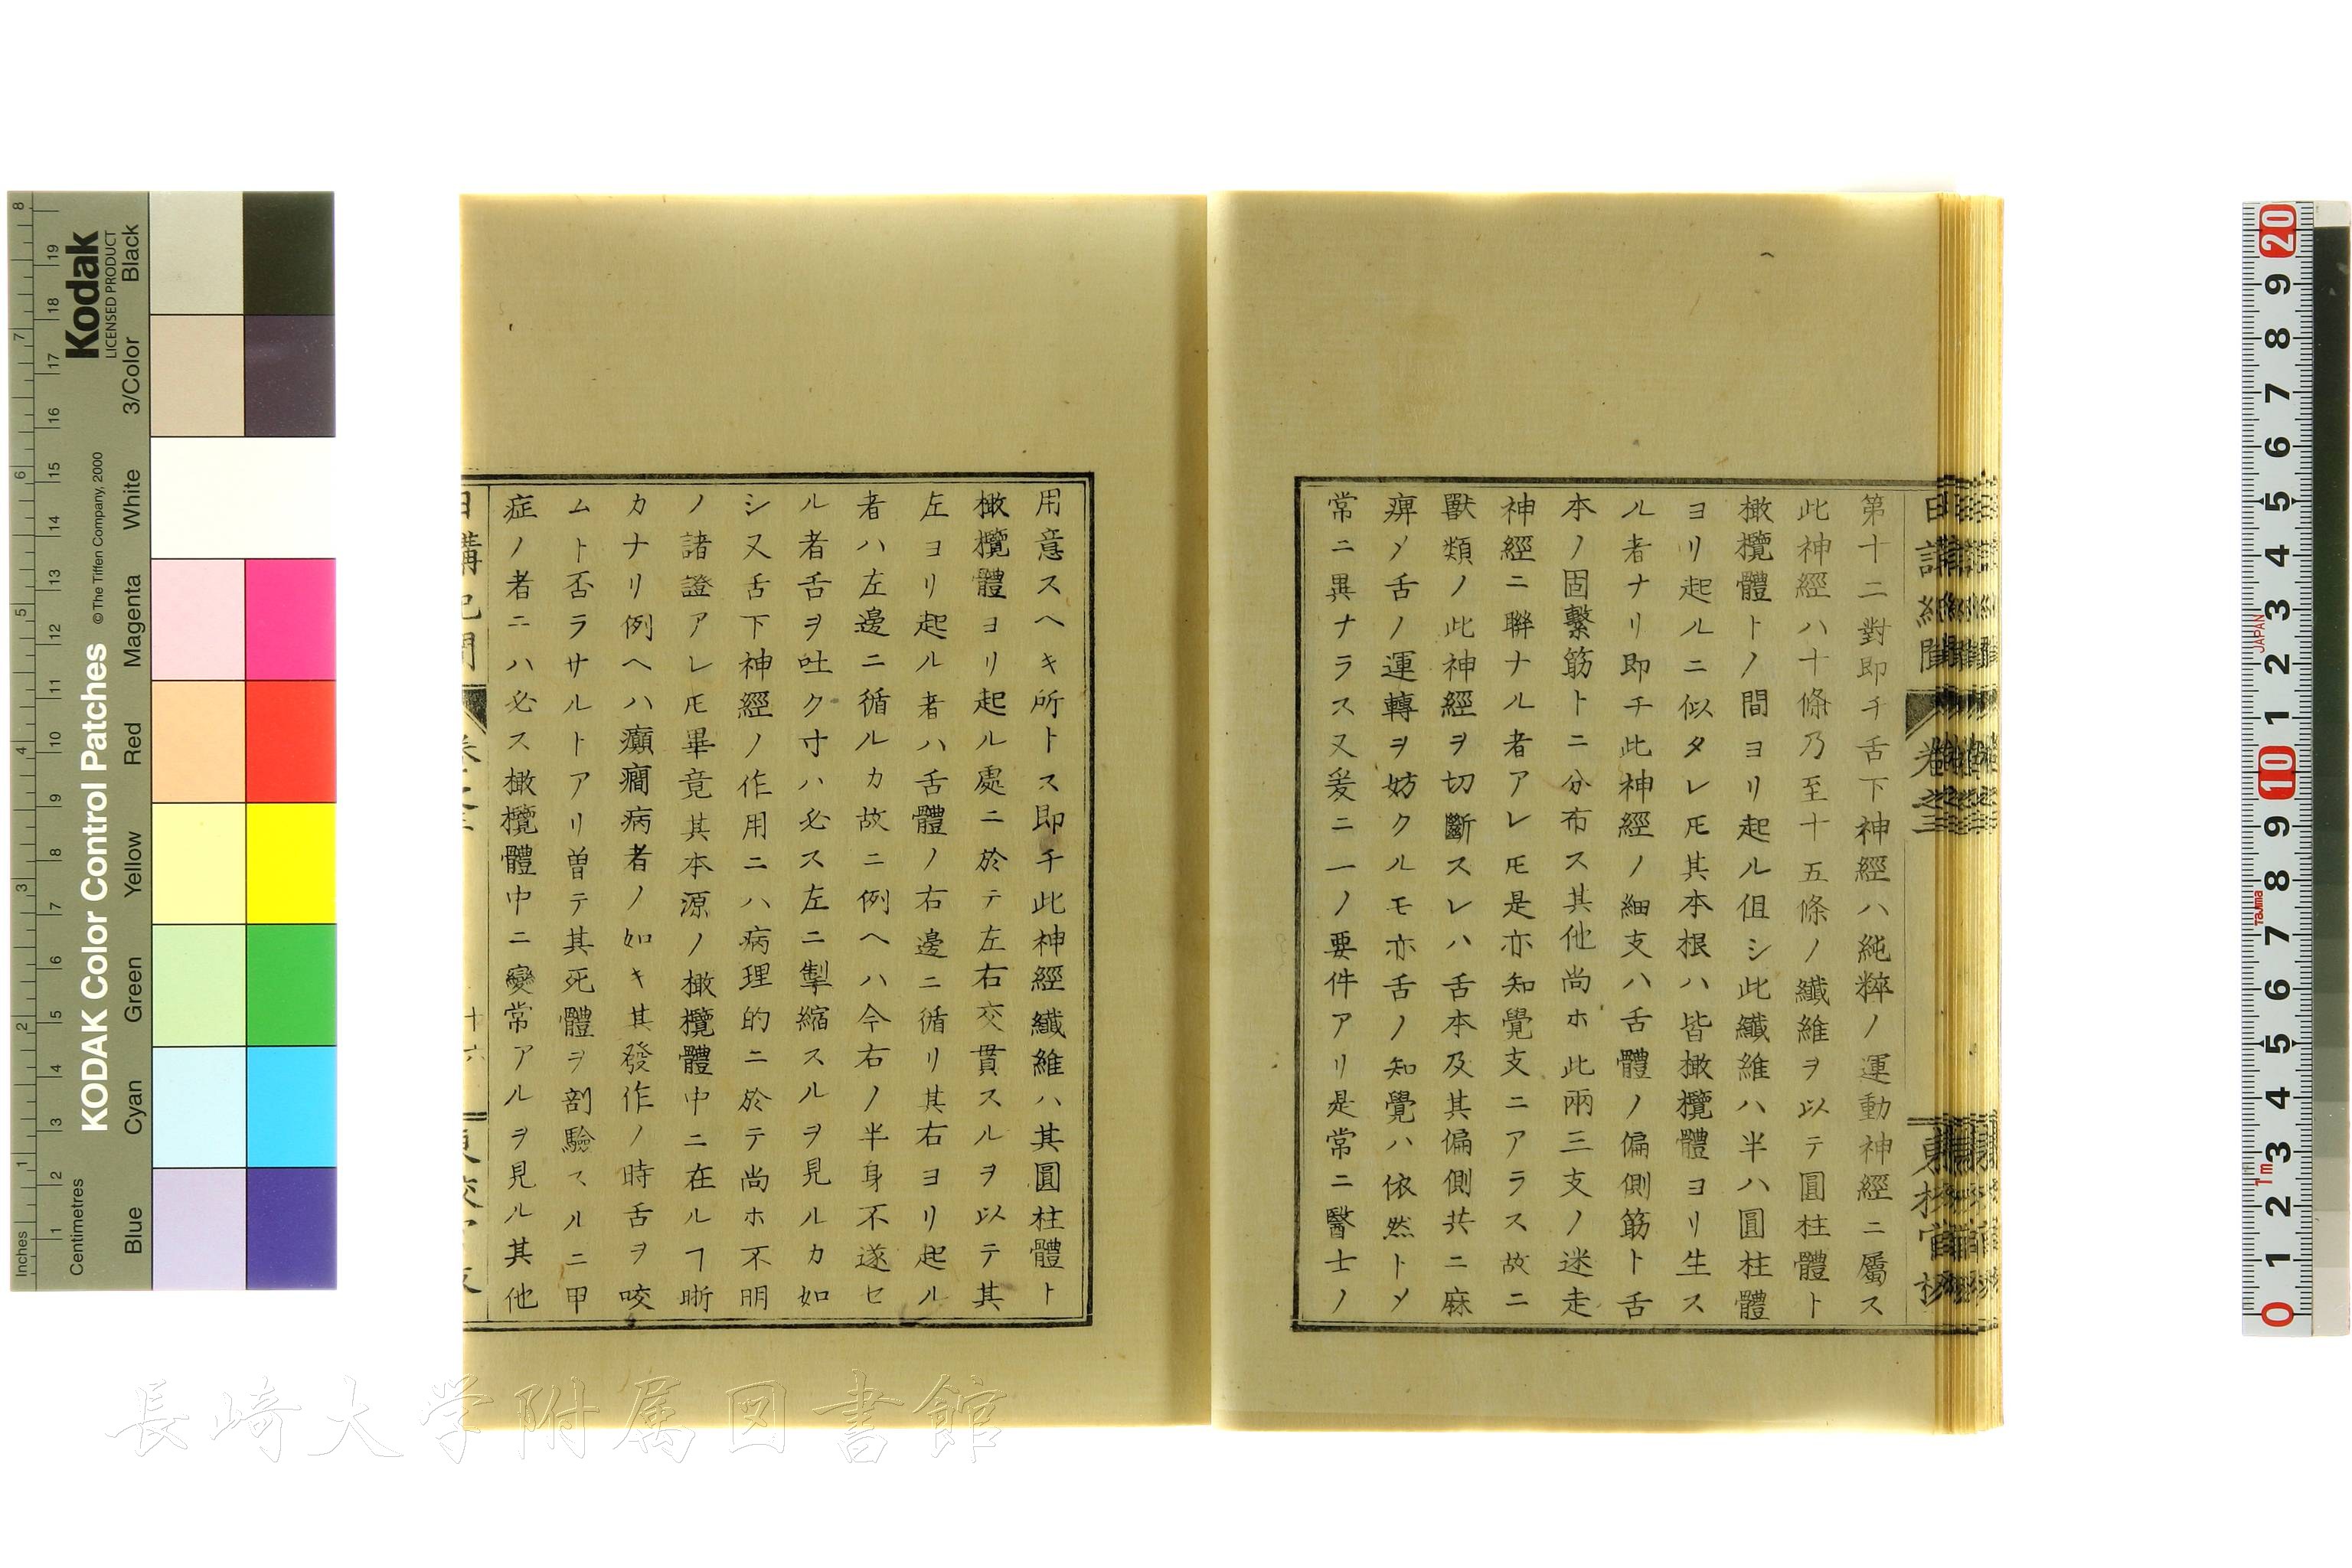 第十二對即チ舌下神經ハ純粹ノ運動神經ニ屬ス
此神經ハ十條乃至十五條ノ纎維ヲ以テ圓柱體ト
橄欖體トノ間ヨリ起ル但シ此纎維ハ半ハ圓柱體
ヨリ起ルニ似タレ𪜈其本根ハ皆橄欖體ヨリ生ス
ル者ナリ即チ此神經ノ細支ハ舌體ノ偏側筋ト舌
本ノ固繫筋トニ分布ス其他尚ホ此兩三支ノ迷走
神經ニ聯ナル者アレ𪜈是亦知覺支ニアラス故ニ
獸類ノ此神經ヲ切斷スレハ舌本及其偏側共ニ麻
痹〆舌ノ運轉ヲ妨クルモ亦舌ノ知覺ハ依然ト〆
常ニ異ナラス又爰ニ一ノ要件アリ是常ニ醫士ノ
用意スヘキ所トス即チ此神經纎維ハ其圓柱體ト
橄欖體ヨリ起ル處ニ於テ左右交貫スルヲ以テ其
左ヨリ起ル者ハ舌體ノ右邊ニ循リ其右ヨリ起ル
者ハ左邊ニ循ルカ故ニ例ヘハ今右ノ半身不遂セ
ル者舌ヲ吐ク寸ハ必ス左ニ掣縮スルヲ見ルカ如
シ又舌下神經ノ作用ニハ病理的ニ於テ尚ホ不明
ノ諸證アレ𪜈畢竟其本源ノ橄欖體中ニ在ルヿ晰
カナリ例ヘハ癲癎病者ノ如キ其發作ノ時舌ヲ咬
ムト否ラサルトアリ曽テ其死體ヲ剖驗スルニ甲
症ノ者ニハ必ス橄欖體中ニ變常アルヲ見ル其他
日講紀聞 卷之三 十六
KODAK Color Control Patches
© The Tiffen Company, 2000
Kodak
LICENSED PRODUCT
Inches
Centimetres
Blue Cyan Green Yellow Red Magenta White 3/Color Black
JAPAN
Tajima
1m
長崎大学附属図書館